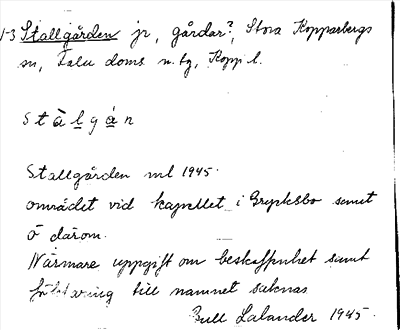 1-3 Stallgården jr, gårdar?, Stora Kopparbergs
sn, Falu doms n. tg, Kopp l.
S t ȧ l g ȧ n
Stallgården ml 1945.
området vid kapellet i Grycksbo samt
ö därom.
Närmare uppgift om beskaffenhet samt
till namnet saknas
Lalander 1945.